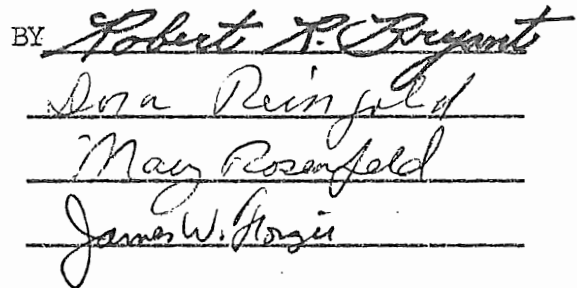 BY Robert R. Bryant
Dora Reingold
Mary Rosenfeld
James W.